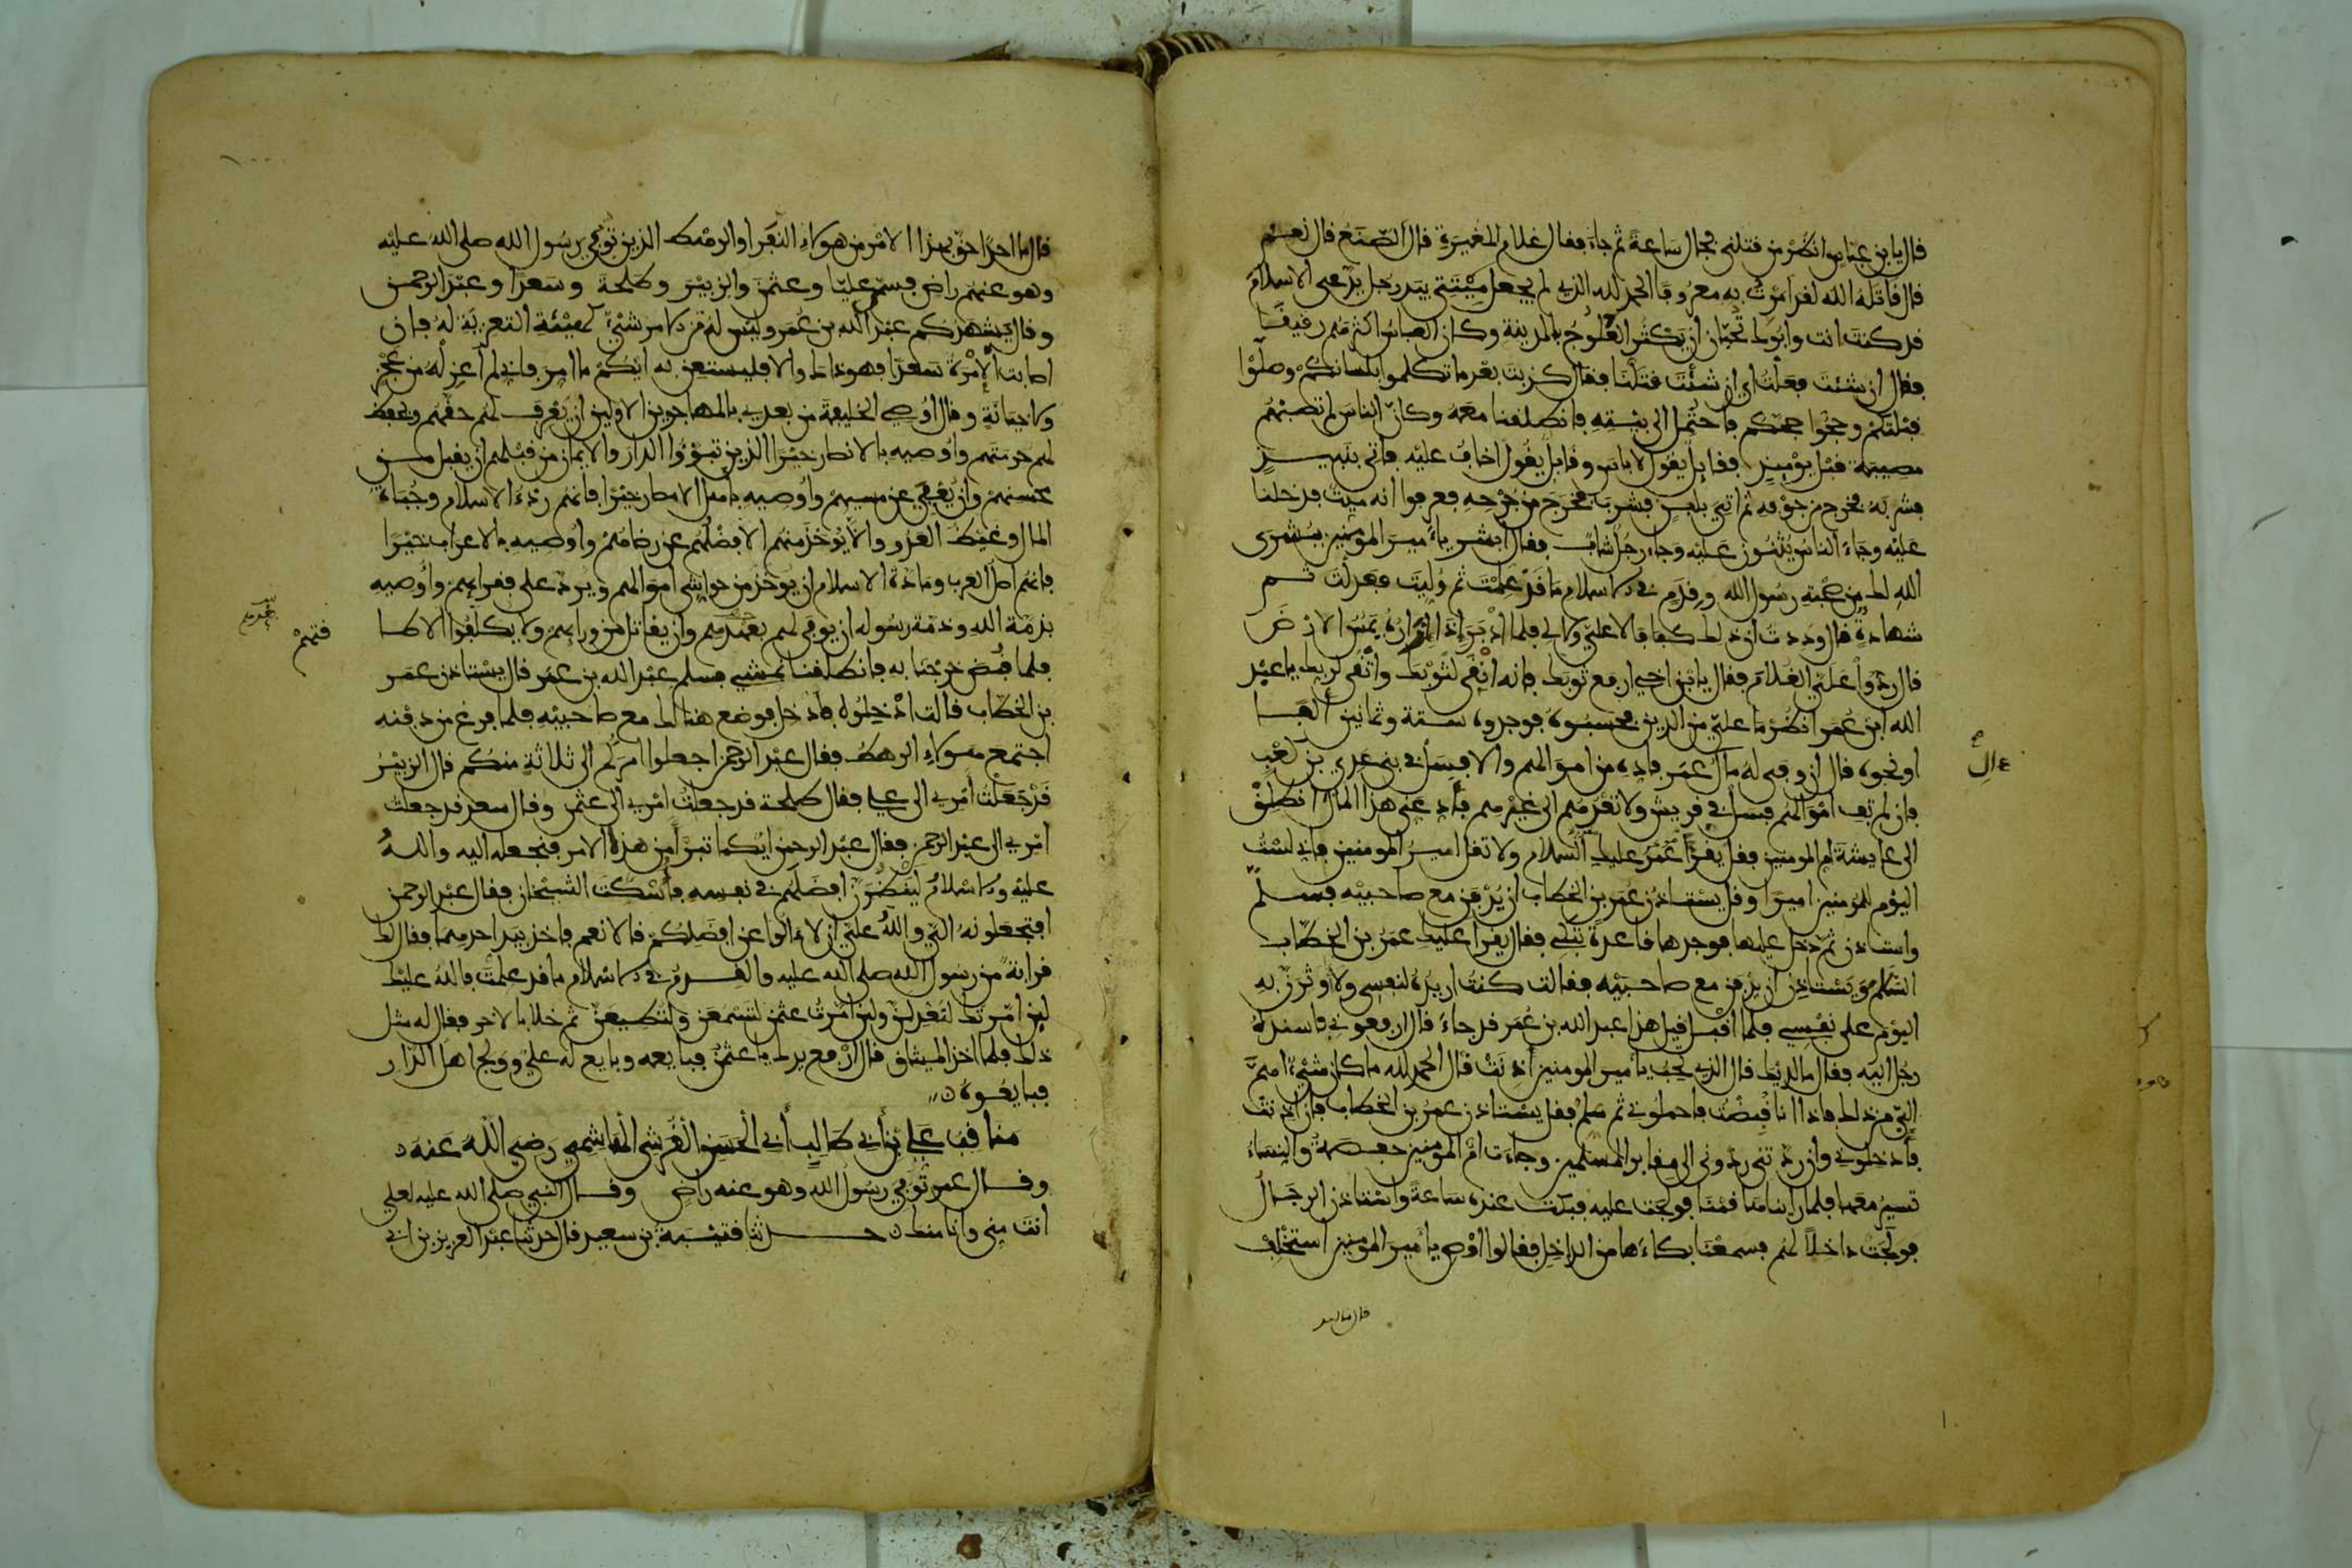 قال يا بن عباس انظر من قتلني فجال ساعة ثم جاء فقال غلام المغيرة قال الصنع قال نعم
قال قاتله الله لقد امرت به معروفا الحمد لله الذي لم يجعل ميتتي بيد رجل يدعي الاسلام
قد كنت انت وابوك تحبان ان يكثر العلوج بالمدينة وكان العباس اكثرهم رقيقا
فقال ان شئت فعلت اي ان شئت قتلنا فقال كذبت بعد ما تكلموا بلسانكم وصلوا
قبلتكم وحجوا حجكم فاحتمل الى بيته فانطلقنا معه وكان الناس لم تصبهم
مصيبة قبل يومئذ فقايل يقول لا باس وقايل يقول اخاف عليه فاتي بنبيذ
فشربه فخرج من جوفه ثم اتي بلبن فشرب فخرج من جرحه فعرفوا انه ميت فدخلنا
عليه وجاء الناس يثنون عليه وجاء رجل شاب فقال ابشر يا امير المومنين ببشرى
الله لك من صحبة رسول الله وقدم في الاسلام ما قد علمت ثم وليت فعدلت ثم
شهادة قال وددت ان ذلك كفافا لا علي ولا لي فلما ادبر اذا ازاره يمس الارض
قال ردوا علي الغلام فقال يا بن اخي ارفع ثوبك فانه انقى لثوبك واتقى لربك يا عبد
الله ابن عمر انظر ما علي من الدين فحسبوه فوجدوه ستة وثمانين الفا
او نحوه قال ان وفى له مال ال عمر فاده من اموالهم والا فسل في بني عدي بن كعب
فان لم تف اموالهم فسل في قريش ولا تعدهم الى غيرهم فاد عني هذا المال انطلق
الى عايشة ام المومنين فقل يقرا عمر عليك السلام ولا تقل امير المومنين فاني لست
اليوم للمومنين اميرا وقل يستاذن عمر بن الخطاب ان يدفن مع صاحبيه فسلم
واستاذن ثم دخل عليها فوجدها قاعدة تبكي فقال يقرا عليك عمر بن الخطاب
السلام ويستاذن ان يدفن مع صاحبيه فقالت كنت اريده لنفسي ولاوثرن به
اليوم على نفسي فلما اقبل قيل هذا عبد الله بن عمر قد جاء قال ارفعوني فاسنده
رجل اليه فقال ما لديك قال الذي تحب يا امير المومنين اذنت قال الحمد لله ما كان شيء اهم
الي من ذلك فاذا انا قبضت فاحملوني ثم سلم فقل يستاذن عمر بن الخطاب فان اذنت
فادخلوني وان ردتني ردوني الى مقابر المسلمين وجاءت ام المومنين حفصة والنساء
تسير معها فلما رايناها قمنا فولجت عليه فبكت عنده ساعة واستاذن الرجال
فولجت داخلا لهم فسمعنا بكاءها من الداخل فقالوا اوص يا امير المومنين استخلف
ال
قال ما احد
قال ما احدا احق بهذا الامر من هولاء النفر او الرهط الذين توفي رسول الله صلى الله عليه
وهو عنهم راض فسمى عليا وعثمن والزبير وطلحة وسعدا وعبد الرحمن
وقال يشهدكم عبد الله بن عمر وليس له من الامر شيء كهيئة التعزية له فان
اصابت الامرة سعدا فهو ذاك والا فليستعن به ايكم ما امر فاني لم اعزله من عجز
ولا خيانة وقال اوصي الخليفة من بعدي بالمهاجرين الاولين ان يعرف لهم حقهم ويحفظ
لهم حرمتهم واوصيه بالانصار خيرا الذين تبوؤا الدار والايمان من قبلهم ان يقبل من
محسنهم وان يعفى عن مسيهم واوصيه باهل الامصار خيرا فانهم ردء الاسلام وجباة
المال وغيظ العدو والا يوخذ منهم الا فضلهم عن رضاهم واوصيه بالاعراب خيرا
فانهم اصل العرب ومادة الاسلام ان يوخذ من حواشي اموالهم ويرد على فقرايهم واوصيه
بذمة الله وذمة رسوله ان يوفى لهم بعهدهم وان يقاتل من ورايهم ولا يكلفوا الا طا
قتهم
فلما قبض خرجنا به فانطلقنا نمشي فسلم عبد الله بن عمر قال يستاذن عمر
بن الخطاب قالت ادخلوه فادخل فوضع هنالك مع صاحبيه فلما فرغ من دفنه
اجتمع هولاء الرهط فقال عبد الرحمن اجعلوا امركم الى ثلاثة منكم قال الزبير
قد جعلت امري الى علي فقال طلحة قد جعلت امري الى عثمن وقال سعد قد جعلت
امري الى عبد الرحمن فقال عبد الرحمن ايكما تبرا من هذا الامر فنجعله اليه والله
عليه والاسلام لينظرن افضلهم في نفسه فاسكت الشيخان فقال عبد الرحمن
افتجعلونه الي والله علي ان لا الوا عن افضلكم قالا نعم فاخذ بيد احدهما فقال لك
قرابة من رسول الله صلى الله عليه والقدم في الاسلام ما قد علمت فالله عليك
لين امرتك لتعدلن ولين امرت عثمن لتسمعن ولتطيعن ثم خلا بالاخر فقال له مثل
ذلك فلما اخذ الميثاق قال ارفع يدك يا عثمن فبايعه وبايع له علي وولج اهل الدار
فبايعوه
مناقب علي بن ابي طالب ابي الحسن القرشي الهاشمي رضي الله عنه
وقال عمر توفي رسول الله وهو عنه راض وقال النبي صلى الله عليه لعلي
انت مني وانا منك حدثنا قتيبة بن سعيد قال حدثنا عبد العزيز بن ابي